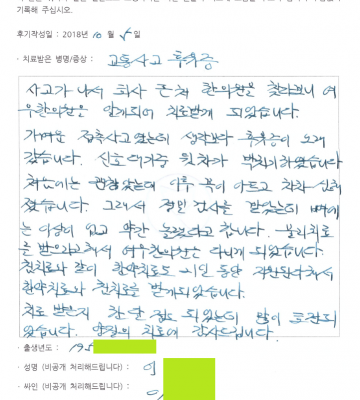 기록해 주십시오.
후기작성일 : 2018년 10월 5일
· 치료받은 병명/증상 : 교통사고 후유증
사고가 나서 회사 근처 한의원을 찾다보니 여
우한의원을 알게되어 치료받게 되었습니다.
가벼운 접촉사고였는데 생각보다 후유증이 오래
갔습니다. 신호대기중 뒷차가 박치기하였습니다
처음에는 괜찮았는데 이후 목이 아프고 차차 심해
졌습니다. 그래서 정밀검사를 받았는데 뼈에
는 이상이 없고 약간 놀랬다고 합니다. 물리치료
를 받으라고 해서 여우한의원을 다니게 되었습니다.
침치료와 같이 한약치료도 시일 동안 지원된다해서
한약치료와 침치료를 받게되었습니다.
치료 받은지 한달 정도 되었는데 많이 호전되
었습니다. 양질의 치료에 감사드립니다.
· 출생년도 : 195
· 성명 (비공개 처리해드립니다) : 이
· 싸인 (비공개 처리해드립니다) : 이